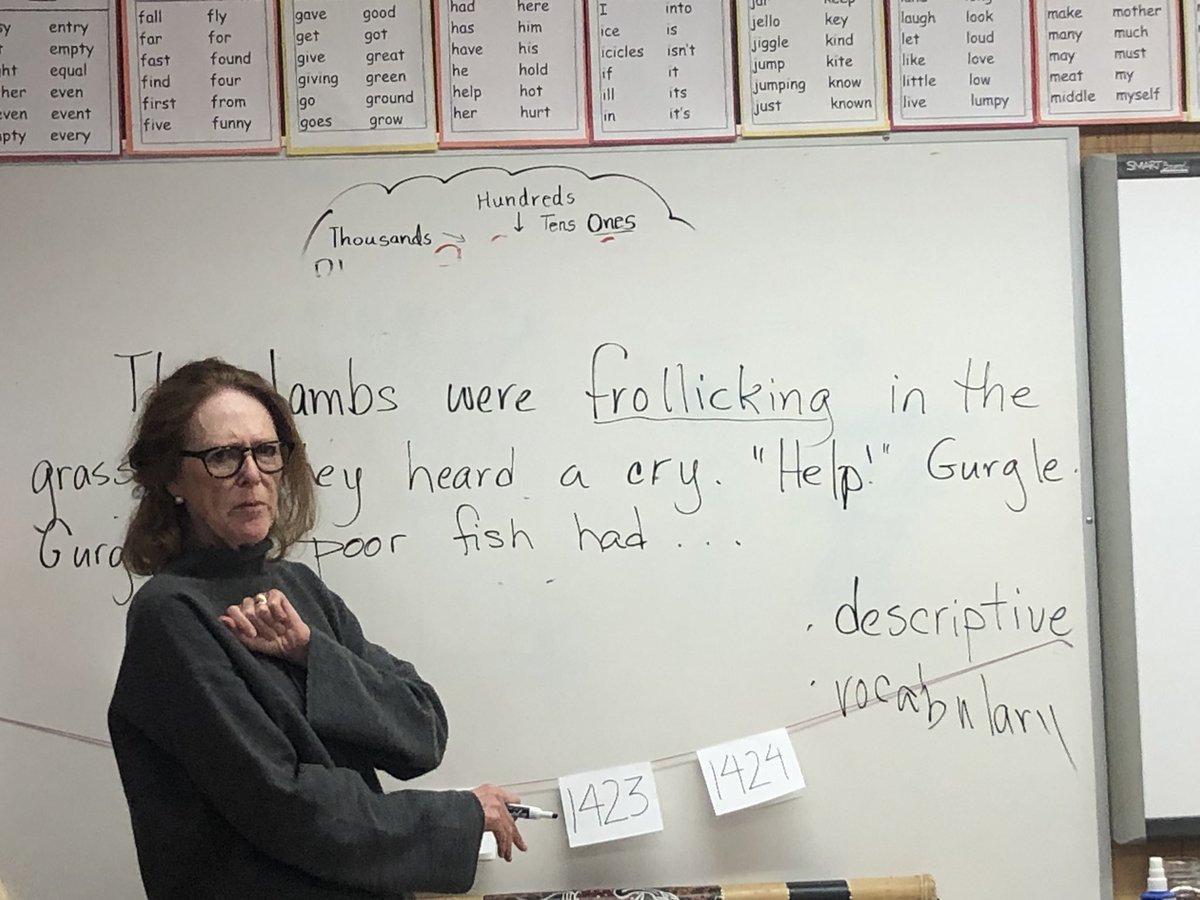 entry
empty
equal
even
event
every
fall fly
far for
fast found
find four
first from
five funny
gave good
get got
give great
giving green
go ground
goes grow
had here
has him
have his
he hold
help hot
her hurt
I into
ice is
icicles isn't
if it
ill its
in it's
jello key
jiggle kind
jump kite
jumping know
just known
laugh look
let loud
like love
little low
live lumpy
make mother
many much
may must
meat my
middle myself
SMART
Hundreds
Thousands → ↓ Tens Ones
lambs were frollicking in the
grass heard a cry. "Help!" Gurgle.
poor fish had ...
. descriptive
. vocabulary
1423
1424